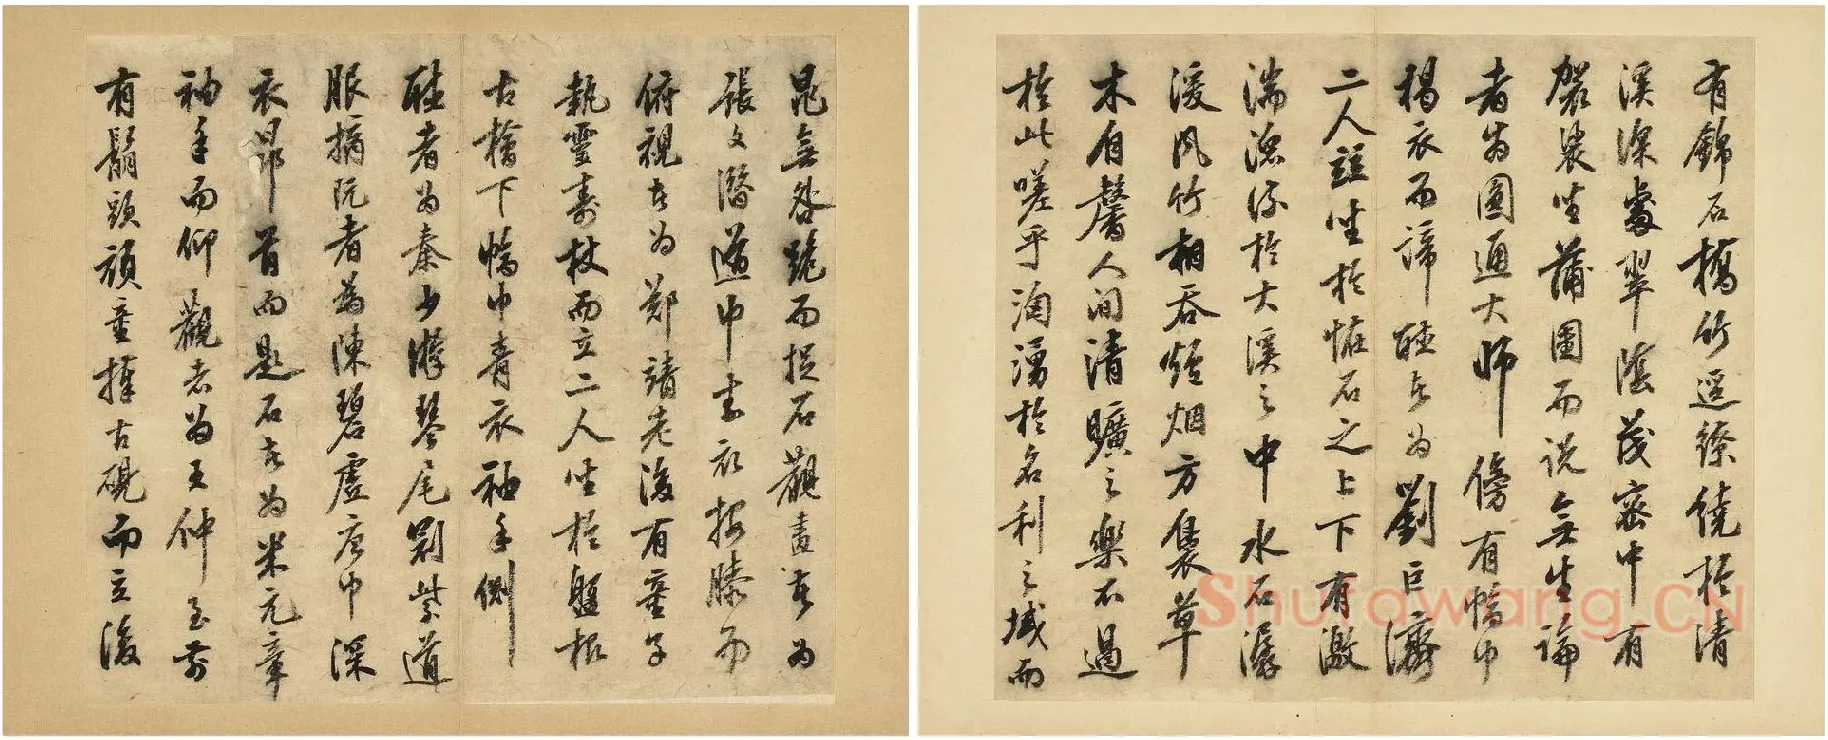 晁無咎跪而捉石觀畫者為
張文潛道巾素衣按膝而
俯視者為鄭靖老後有童子
執靈壽杖而立二人坐於盤根
古檜下幅巾青衣袖手側
聽者為秦少游琴尾冠紫道
服摘阮者為陳碧虛唐巾深
衣昂首而題石者為米元章
袖手而仰觀者為王仲至前
有鬅頭頑童捧古硯而立後
有錦石橋竹逕繚繞於清
溪深處翠陰茂密中有
袈裟坐蒲團而說無生論
者為圓通大師傍有幅巾
褐衣而諦聽者為劉巨濟
二人並坐於怪石之上下有激
湍潨流於大溪之中水石潺
湲風竹相吞爐烟方裊草
木自馨人間清曠之樂不過
於此嗟乎洶湧於名利之域而
Shufawang.CN